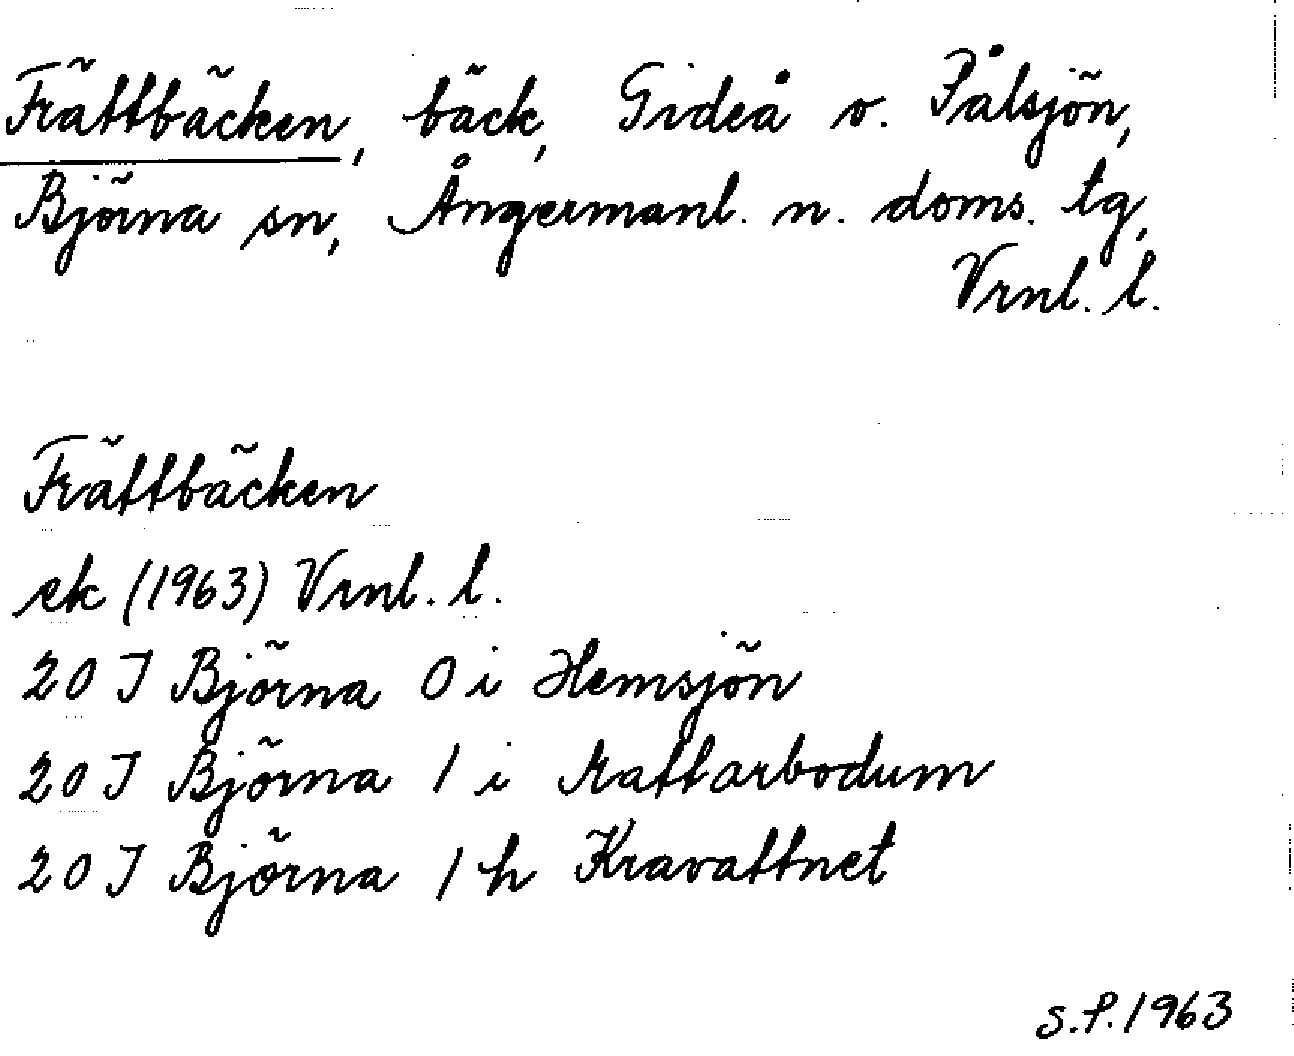 Frättbäcken, bäck, Gideå o. Pålsjön,
Björna sn, Ångermanl. n. doms. tg,
Vrnl. l.
Frättbäcken
ek (1963) Vrnl. l.
20 J Björna 0 i Hemsjön
20 J Björna 1 i Mattarbodum
20 J Björna 1 h Kravattnet
S.P. 1963